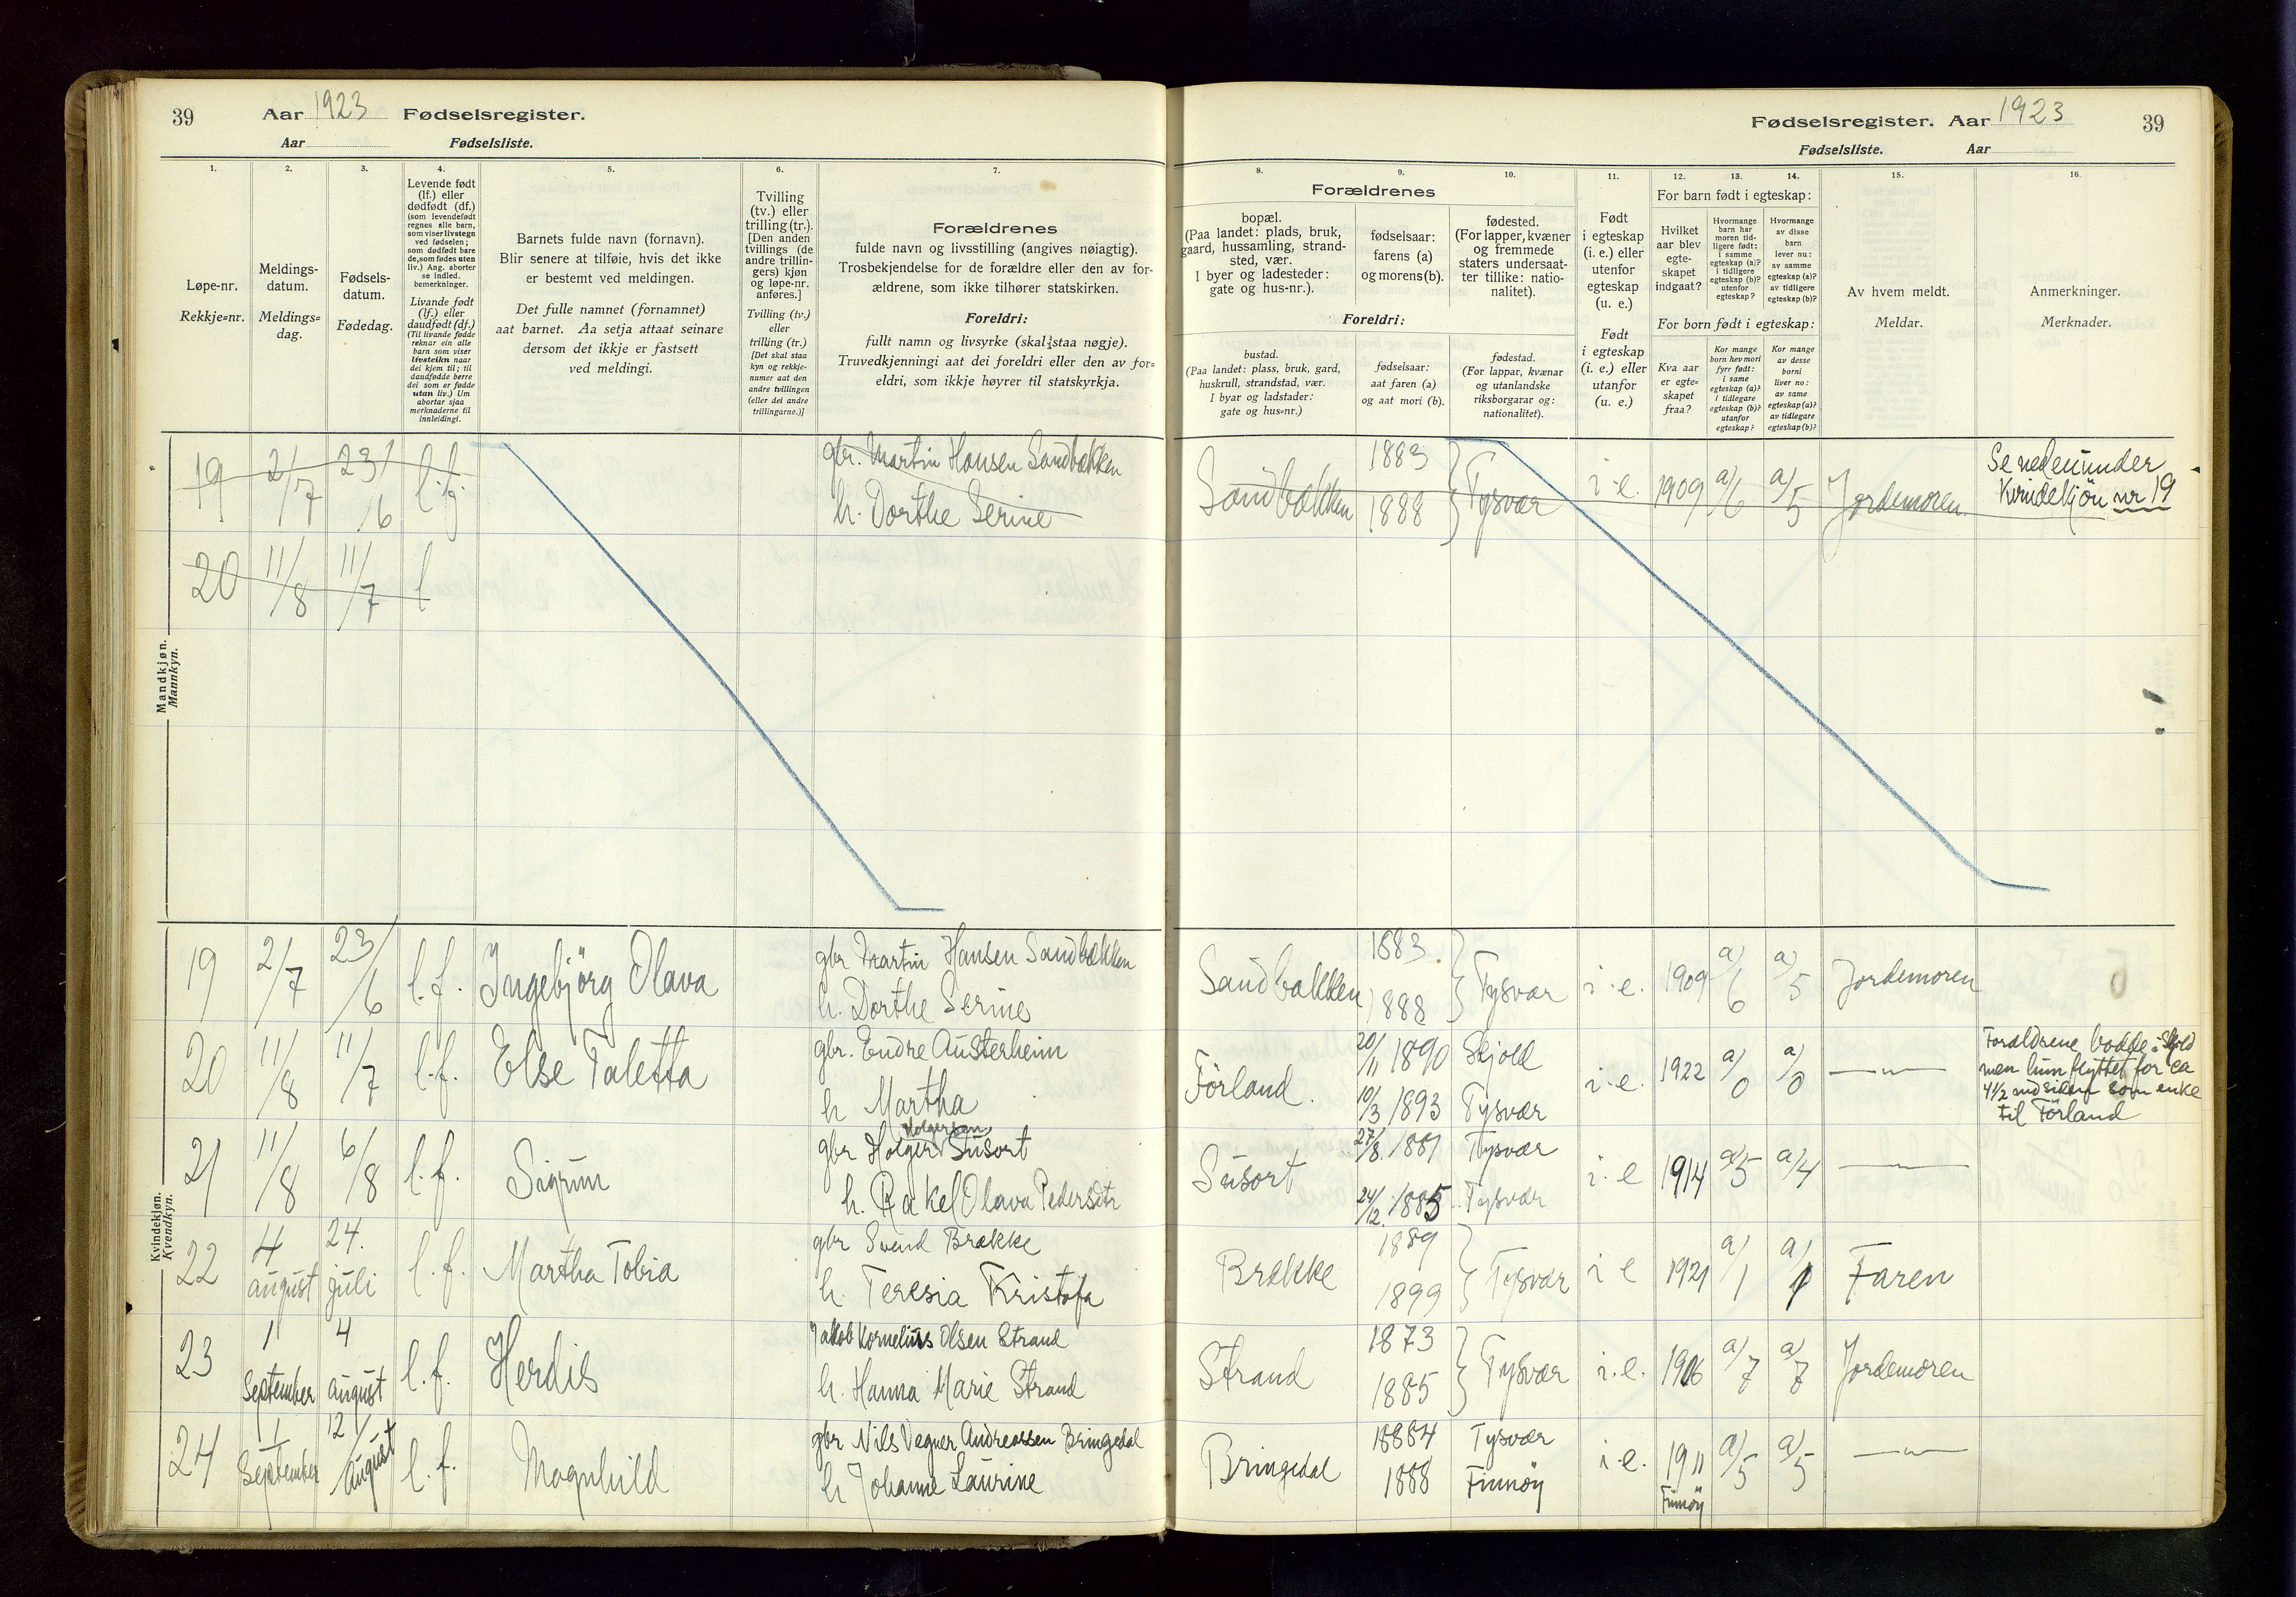 39 Aar 1923 Fødselsregister.
Aar Fødselsliste.
Fødselsregister. Aar 1923 39
Fødselsliste. Aar
1.
Løpe-nr.
Rekkje=nr.
2.
Meldings-
datum.
Meldings=
dag.
3.
Fødsels-
datum.
Fødedag.
4.
Levende født
(lf.) eller
dødfødt (df.)
(som levendefødt
regnes alle barn,
som viser livstegn
ved fødselen;
som dødfødt bare
de, som fødes uten
liv.) Ang. aborter
se indled.
bemerkninger.
Livande født
(lf.) eller
daudfødt (df.)
(Til livande fødde
reknar ein alle
barn som viser
livsteikn naar
dei kjem til; til
daudfødde berre
dei som er fødde
utan liv.) Um
abortar sjaa
merknaderne til
innleidingi.
5.
Barnets fulde navn (fornavn).
Blir senere at tilføie, hvis det ikke
er bestemt ved meldingen.
Det fulle namnet (fornamnet)
aat barnet. Aa setja attaat seinare
dersom det ikkje er fastsett
ved meldingi.
6.
Tvilling
(tv.) eller
trilling (tr.).
[Den anden
tvillings (de
andre trillin-
gers) kjøn
og løpe-nr.
anføres.]
Tvilling (tv.)
eller
trilling (tr.)
[Det skal staa
kyn og rekkje-
numer aat den
andre tvillingen
(eller dei andre
trillingarne.)]
7.
Forældrenes
fulde navn og livsstilling (angives nøiagtig).
Trosbekjendelse for de forældre eller den av for-
ældrene, som ikke tilhører statskirken.
Foreldri:
fullt namn og livsyrke (skal staa nøgje).
Truvedkjenningi aat dei foreldri eller den av for=
eldri, som ikkje høyrer til statskyrkja.
8.
Forældrenes
bopæl.
(Paa landet: plads, bruk,
gaard, hussamling, strand-
sted, vær.
I byer og ladesteder:
gate og hus-nr.).
Foreldri:
bustad.
(Paa landet: plass, bruk, gard,
huskrull, strandstad, vær.
I byar og ladstader:
gate og hus=nr.)
9.
fødselsaar:
farens (a)
og morens (b).
fødselsaar:
aat faren (a)
og aat mori (b).
10.
fødested.
(For lapper, kvæner
og fremmede
staters undersaat-
ter tillike: natio-
nalitet).
fødestad.
(For lappar, kvænar
og utanlandske
riksborgarar og:
nationalitet).
11.
Født
i egteskap
(i. e.) eller
utenfor
egteskap
(u. e.)
Født
i egteskap
(i. e.) eller
utanfor
(u. e.)
12. 13. 14.
For barn født i egteskap:
Hvilket
aar blev
egte-
skapet
indgaat?
Hvormange
barn har
moren tid-
ligere født:
i samme
egteskap (a)?
i tidligere
egteskap (b)?
utenfor
egteskap?
Hvormange
av disse
barn
lever nu:
av samme
egteskap (a)?
av tidligere
egteskap (b)?
For born født i egteskap:
Kva aar
er egte=
skapet
fraa?
Kor mange
born hev mori
fyrr født:
i same
egteskap (a)?
i tidlegare
egteskap (b)?
utanfor
egteskap?
Kor mange
av desse
borni
liver no:
av same
egteskap (a)?
av tidlegare
egteskap (b)?
15.
Av hvem meldt.
Meldar.
16.
Anmerkninger.
Merknader.
Mandkjøn.
Mannkyn.
19 2/7 23/6 l.f. gbr. Martin Hansen Sandbækken
h. Dorthe Serine
Sandbækken 1883 1888 Tysvær i.e. 1909 a/6 a/5 Jordemoren
Se nedenunder
Kvindekjön nr 19
20 11/8 11/7 l
Kvindekjøn.
Kvendkyn.
19 2/7 23/6 l.f. Ingebjörg Olava gbr Martin Hansen Sandbækken
h. Dorthe Serine
Sandbækken 1883 1888 Tysvær i.e. 1909 a/6 a/5 Jordemoren
20 11/8 11/7 l.f. Else Taletta gbr. Endre Austerheim
h Martha
Förland. 20/11 1890 Skjold
10/3 1893 Tysvær i.e. 1922 a/0 a/0 —"—
Forældrene bodde i Skjold
men hun flyttet for ca
4½ md siden som enke
til Förland
21 11/8 6/8 l.f. Sigrun gbr Holger Holgersen Susort
h. Rakel Olava Pedersdtr
Susort 27/8 1887 Tysvær
24/12 1885 Tysvær i.e 1914 a/5 a/4 —"—
22 4 august 24. juli l.f. Martha Tobia gbr Svend Brække
h. Teresia Kristofa
Brække 1889 1899 Tysvær i e 1921 a/1 a/1 Faren
23 1 September 4 august l.f. Herdis Jakob Kornelius Olsen Strand
h. Hanna Marie Strand
Strand 1873 1885 Tysvær i.e. 1906 a/7 a/7 Jordemoren
24 1 September 12/ August l.f. Magnhild gbr Nils Vegner Andreassen Bringedal
h Johanne Laurine
Bringedal 1884 Tysvær
1888 Finnöy i.e. 1911 Finnöy a/5 a/5 —"—